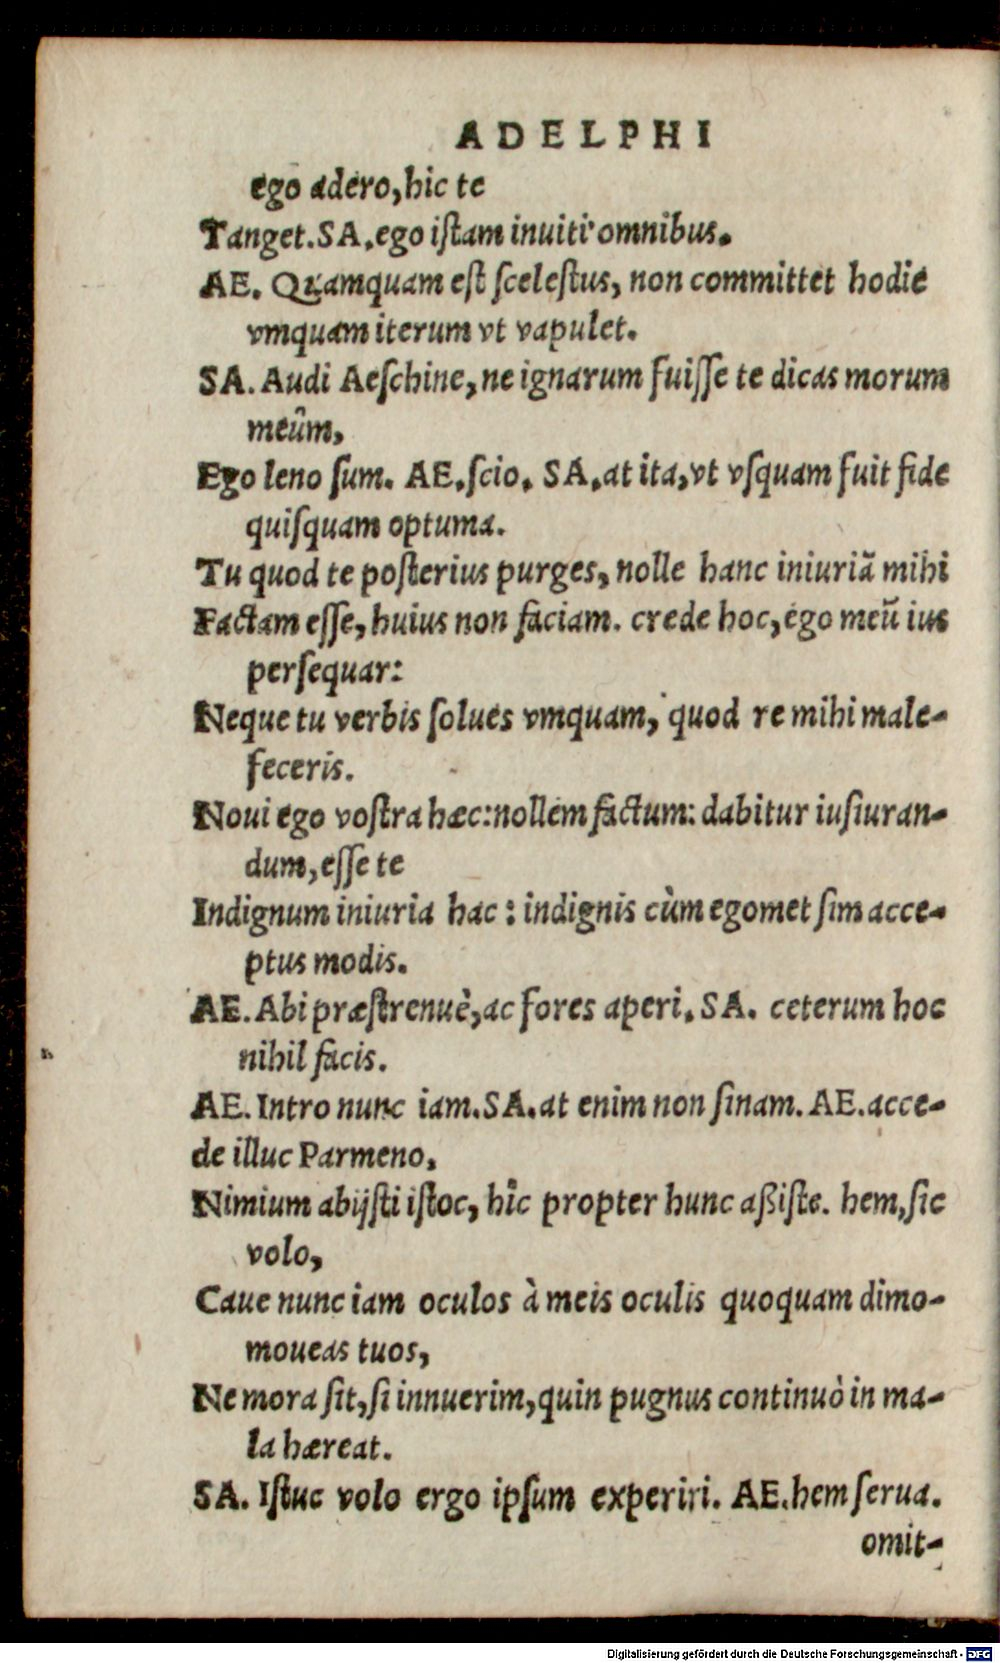 ADELPHI
ego adero, hic te
Tanget. SA. ego iſtam inuitiˢ omnibus.
AE. Quamquam eſt ſceleſtus, non committet hodie
vmquam iterum vt vapulet.
SA. Audi Aeſchine, ne ignarum fuiſſe te dicas morum
meûm,
Ego leno ſum. AE. ſcio. SA. at ita, vt vſquam fuit fide
quiſquam optuma.
Tu quod te poſterius purges, nolle hanc iniuriã mihi
Factam eſſe, huius non faciam. crede hoc, ego meũ ius
perſequar:
Neque tu verbis ſolues vmquam, quod re mihi male-
feceris.
Noui ego voſtra hæc: nollem factum: dabitur iuſiuran-
dum, eſſe te
Indignum iniuria hac: indignis cùm egomet ſim acce-
ptus modis.
AE. Abi præſtrenuè, ac fores aperi. SA. ceterum hoc
nihil facis.
AE. Intro nunc iam. SA. at enim non ſinam. AE. acce-
de illuc Parmeno,
Nimium abijſti iſtoc, hîc propter hunc aßiſte. hem, ſic
volo,
Caue nunc iam oculos à meis oculis quoquam dimo-
moueas tuos,
Ne mora ſit, ſi innuerim, quin pugnus continuò in ma-
la hæreat.
SA. Iſtuc volo ergo ipſum experiri. AE. hem ſerua.
omit-
Digitalisierung gefördert durch die Deutsche Forschungsgemeinschaft - DFG